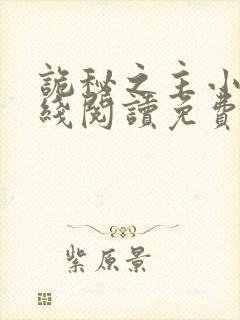 詭秘之主小
綫閱讀免費
紫原景